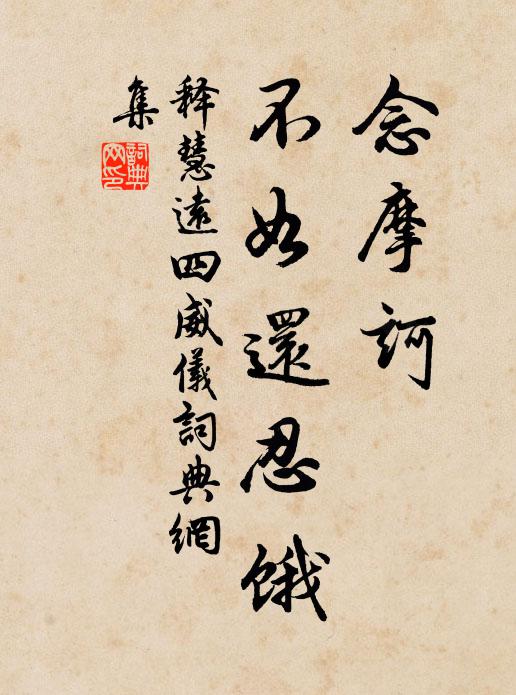 念摩訶
不如還忍饿
释慧遠四威儀詞典網
集
詞典
网印